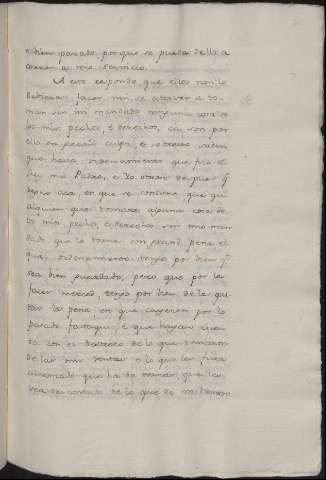 e bien parado, por que se pueda dello a
correr a mio servicio.
A esto respondo que ellos non lo
debieran facer, nin se atrever a to-
mar sin mi mandado ninguna cosa de
los mios pechos, e derechos, ca son por
ello en grand culpa, e sobresto saben
que hevia ordenamiento que fizo el
Rey mio Padre, e Yo otrosi despues q.
Regno aca, en que se contiene que qual
alguien que tomare alguna cosa de
los mios pechos, e derechos sin mio man-
dado que lo torne con grand pena, el
qual ordenamiento tengo por bien q.
sea bien guardado; pero que por les
facer merced, tengo por bien de le qui-
tar la pena en que cayeron por lo
pasado fasta aqui, e que hayan cuen-
ta con el dinero de lo que tomaron
de las mis rentas o lo que les fuere
alcanzado que ha de tomar, que les
sea descontado de lo que de mi tienen